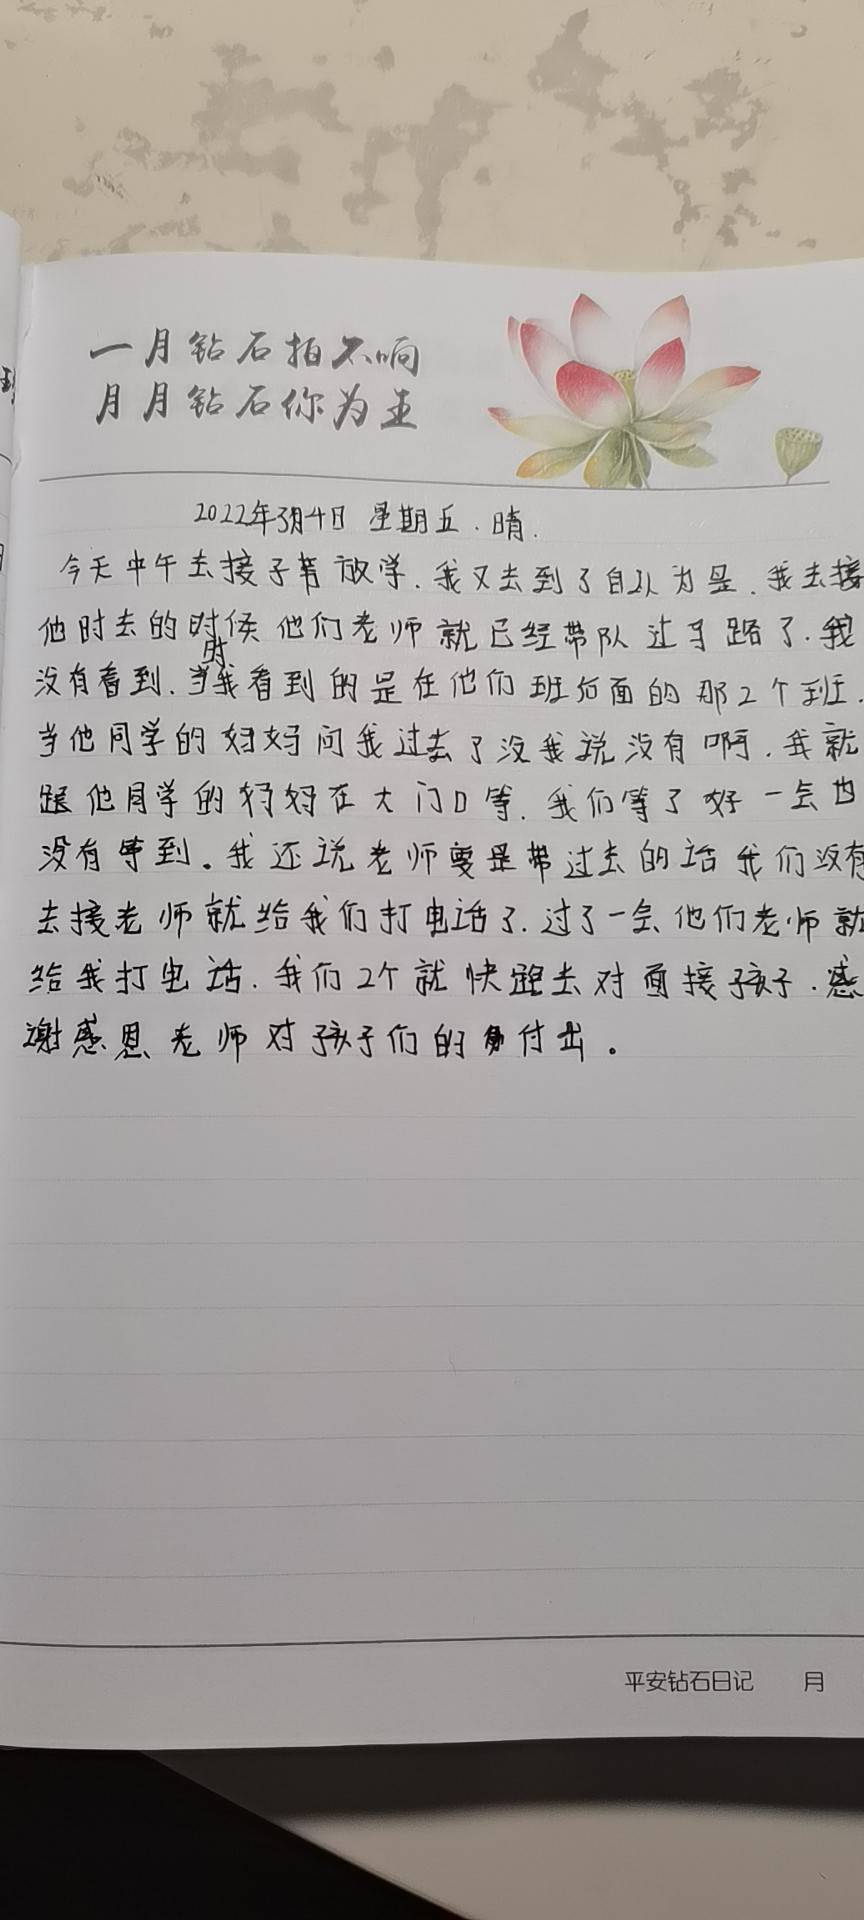 一月钻石拍不响
月月钻石你为王
2022年3月4日 星期五.晴.
今天中午去接子菁放学.我又去到了自认为是.我去接
他时去的时候他们老师就已经带队过马路了.我
没有看到.当时我看到的是在他们班后面的那2个班.
当他同学的妈妈问我过去了没我说没有啊.我就
跟他同学的妈妈在大门口等.我们等了好一会也
没有等到。我还说老师要是带过去的话我们没有
去接老师就给我们打电话了.过了一会他们老师就
给我打电话.我们2个就快跑去对面接孩子.感
谢感恩老师对孩子们的付出。
平安钻石日记 月